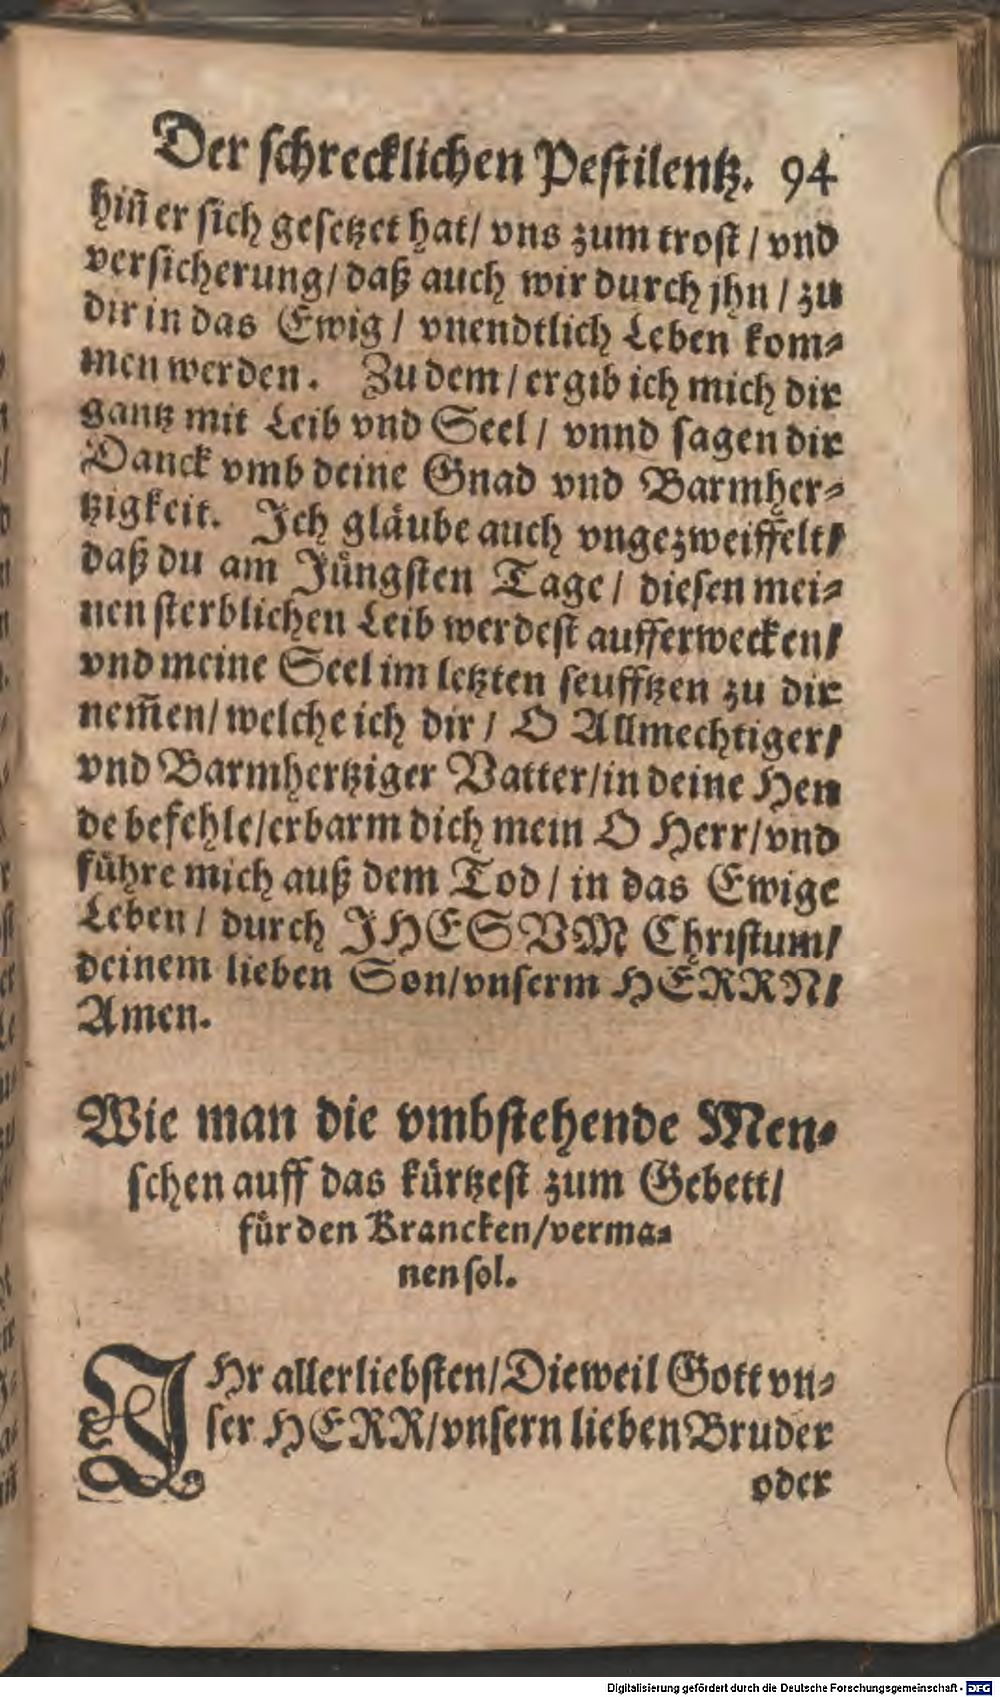 Der ſchrecklichen Peſtilentz. 94
hiñ er ſich geſetzet hat/ vns zum troſt / vnd
verſicherung/ daß auch wir durch jhn / zu
dir in das Ewig / vnendtlich Leben kom⸗
men werden. Zu dem / ergib ich mich dir
gantz mit Leib vnd Seel / vnnd ſagen dir
Danck vmb deine Gnad vnd Barmher⸗
tzigkeit. Ich glaͤube auch vngezweiffelt/
daß du am Juͤngſten Tage / dieſen mei⸗
nen ſterblichen Leib werdeſt aufferwecken/
vnd meine Seel im letzten ſeufftzen zu dir
nem̃en/ welche ich dir / O Allmechtiger/
vnd Barmhertziger Vatter/in deine Hen
de befehle/erbarm dich mein O Herr/vnd
fuͤhre mich auß dem Tod / in das Ewige
Leben / durch JHESVM Chriſtum/
deinem lieben Son/vnſerm HERRN/
Amen.
Wie man die vmbſtehende Men⸗
ſchen auff das kuͤrtzeſt zum Gebett/
fuͤr den Krancken/verma⸗
nen ſol.
IHr allerliebſten/Dieweil Gott vn⸗
ſer HERR/vnſern lieben Bruder
oder
Digitalisierung gefördert durch die Deutsche Forschungsgemeinschaft - DFG